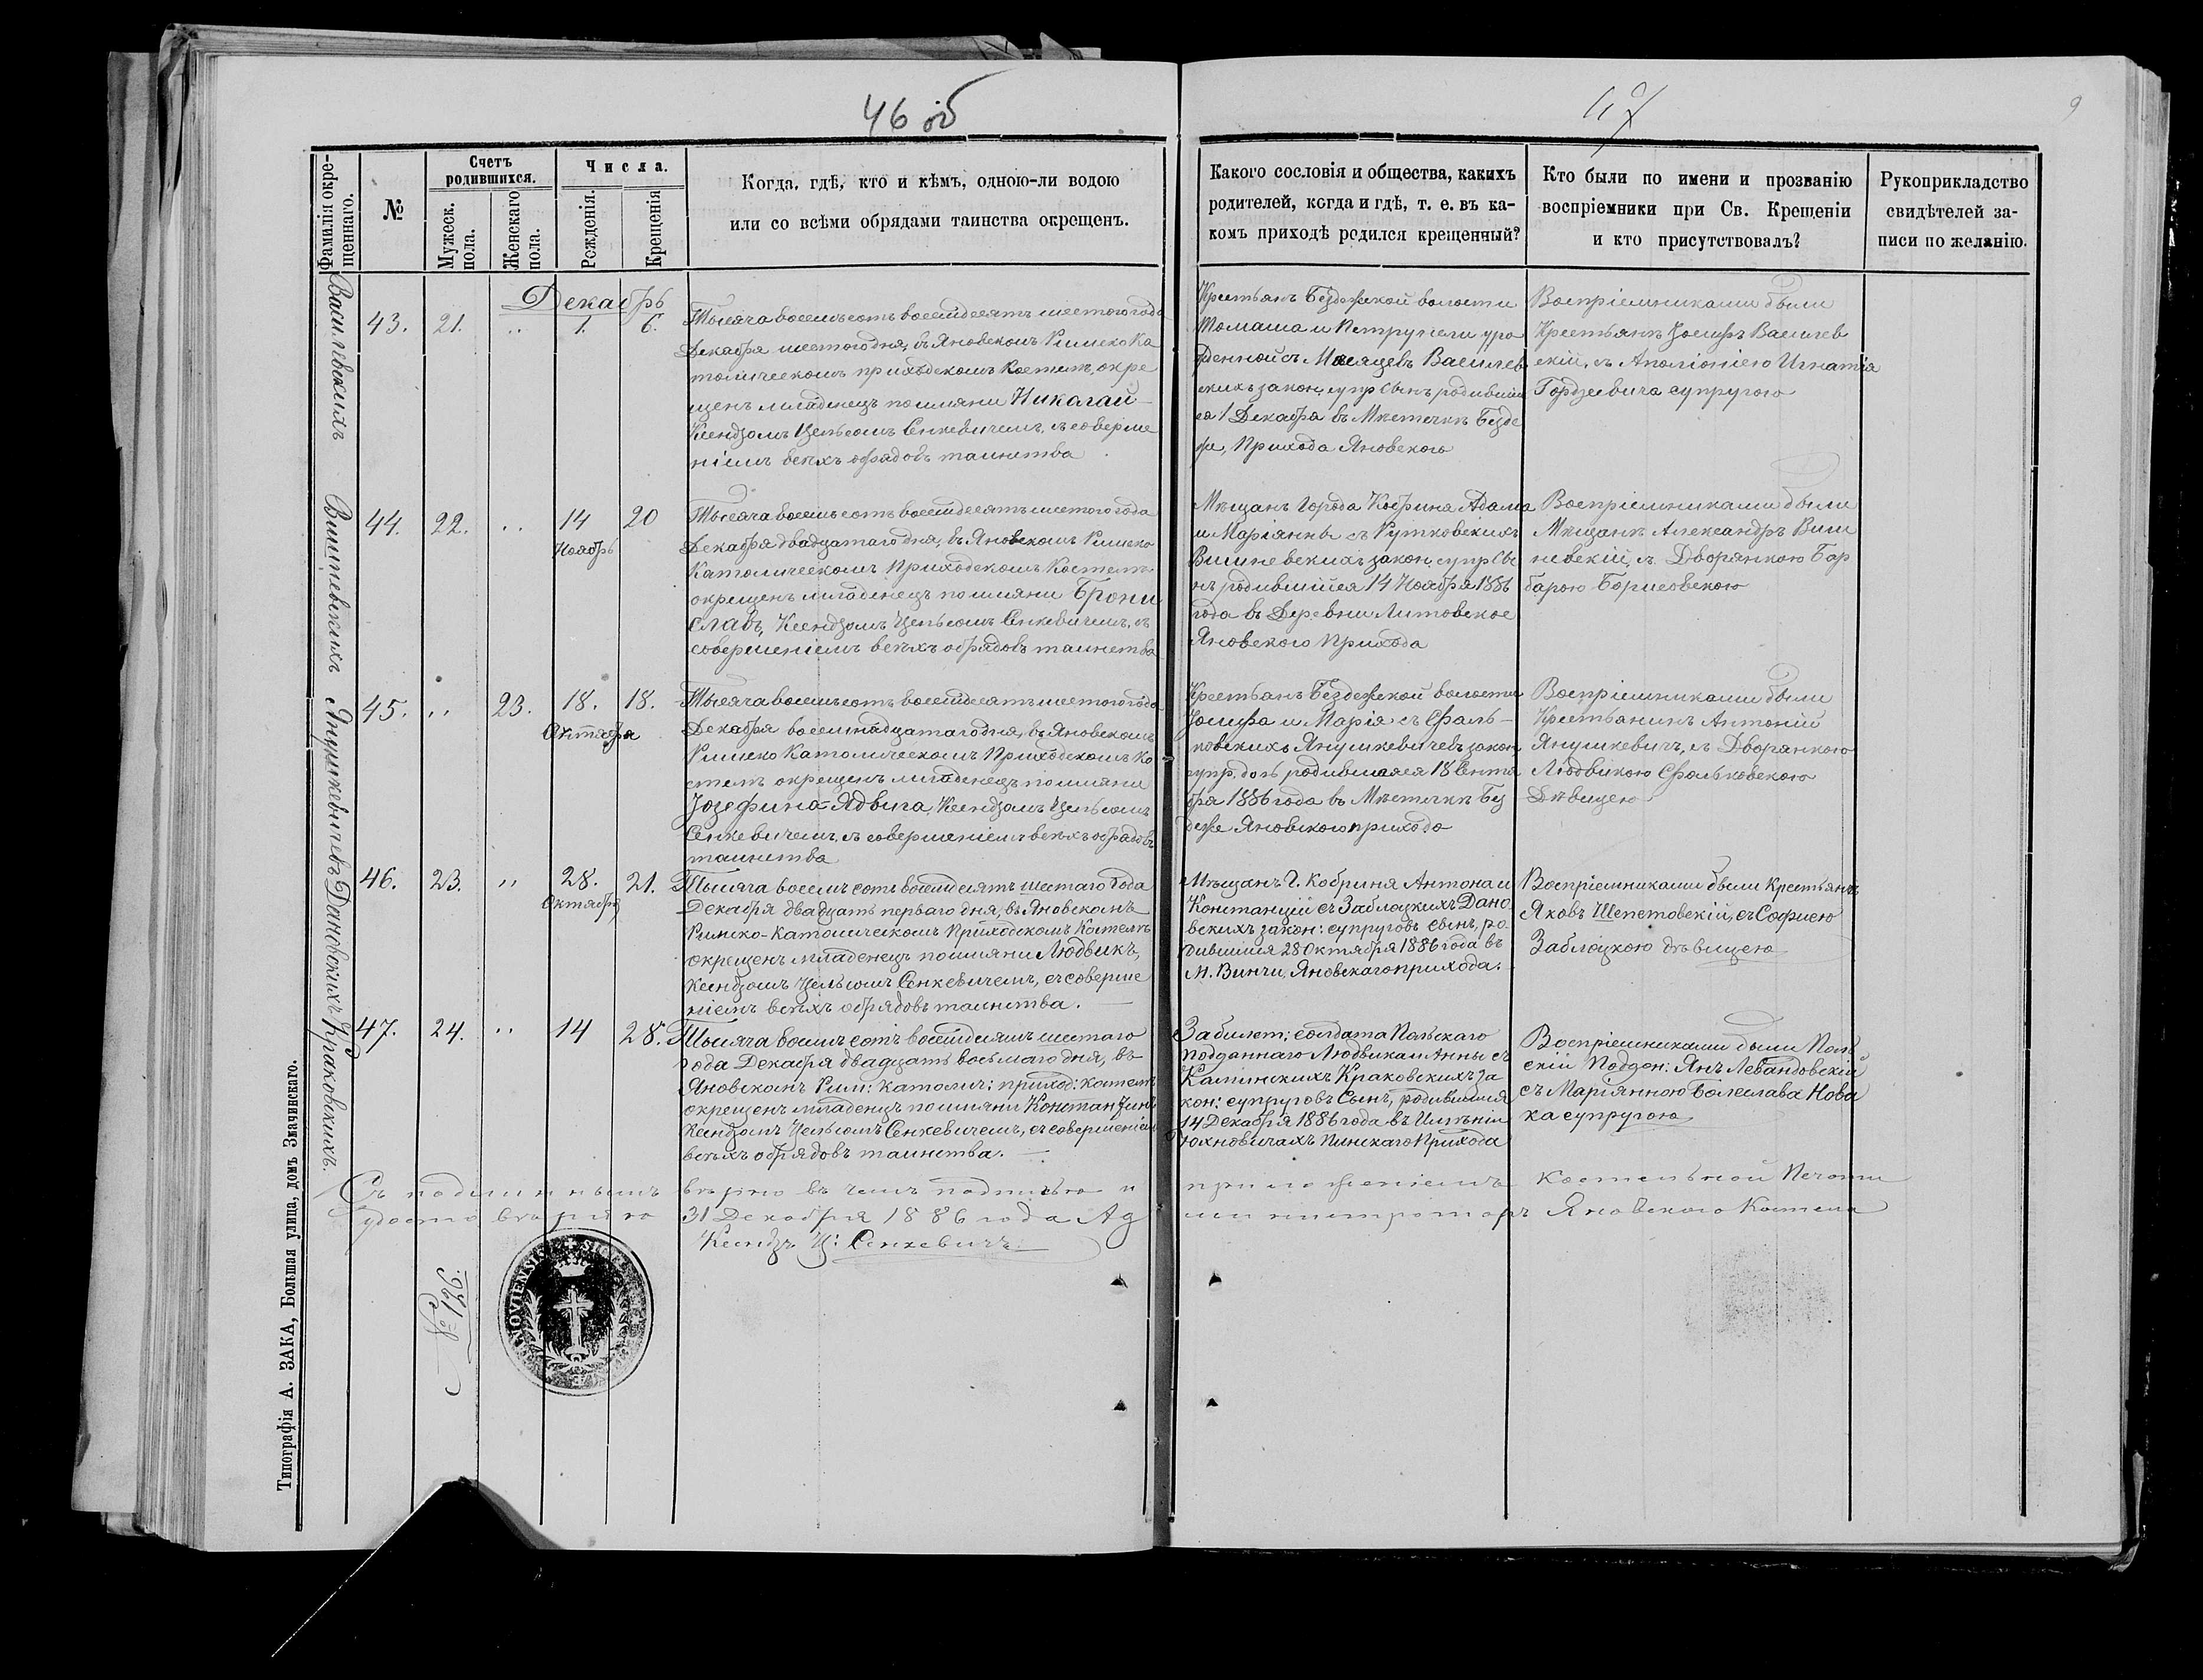 46 об
47
9
Фамилія окре-
щеннаго.
№
Счетъ
родившихся.
Мужеск.
пола.
Женскаго
пола.
Числа.
Рожденія.
Крещенія
Когда, гдѣ, кто и кѣмъ, одною-ли водою
или со всѣми обрядами таинства окрещенъ.
Какого сословія и общества, какихъ
родителей, когда и гдѣ, т. е. въ ка-
комъ приходѣ родился крещенный?
Кто были по имени и прозванію
воспріемники при Св. Крещеніи
и кто присутствовалъ?
Рукоприкладство
свидѣтелей за-
писи по желанію.
Декабрь
Василевскихъ
43. 21. „ 1. 6.
Тысяча восемьсотъ восемдесятъ шестого года
Декабря шестого дня, въ Яновскомъ Римско Ка
толическомъ приходскомъ Костелѣ, окре
щенъ младенецъ по имяни Николай
Ксендзомъ Цельсомъ Сенкевичемъ, съ соверше
ніемъ всѣхъ обрядовъ таинства
Крестьянъ Бездежской волости
Томаша и Петрунели уро
жденной съ Василев
скихъ закон. супр Сынъ родивший
ся 1 Декабря въ Мѣстечкѣ Безде
жи, Прихода Яновского
Воспріемниками были
Крестьянъ Іосифъ Василев
скій, съ Аполіоніею Игнатія
Гордзеевича супругою
Вишневскихъ
44. 22. „ 14 20
Ноябрь
Тысяча восемьсотъ восемдесятъ шестого года
Декабря двадцатаго дня, въ Яновскомъ Римско
Католическомъ Приходскомъ Костелѣ
окрещенъ младенецъ по имяни Брони
славъ, Ксендзомъ Цельсомъ Сенкевичемъ, съ
совершеніемъ всѣхъ обрядовъ таинства
Мѣщанъ Города Кобрина Адама
и Маріянны съ Рутковскихъ
Вишневскихъ закон. супр Сы
нъ родившийся 14 Ноября 1886
года въ Деревни Литовское
Яновского Прихода
Воспріемниками были
Мѣщанъ Александръ Виш
невскій, съ Дворянкою Бар
барою Борисовскою
Янушкевичевъ
45. „ 23. 18. 18.
Октября
Тысяча восемьсотъ восемдесятъ шестого года
Декабря восемнадцатаго дня, въ Яновскомъ
Римско Католическомъ Приходскомъ Ко
стелѣ окрещенъ младенецъ по имяни
Іозефина-Ядвига, Ксендзомъ Цельсомъ
Сенкевичемъ, съ совершеніемъ всѣхъ обрядовъ
таинства
Крестьянъ Бездежской волости
Іосифа и Марія съ Фаль-
ковскихъ Янушкевичевъ закон
супр. дочь родившаяся 18 Сентя
бря 1886 года въ Мѣстечкѣ Без
деже Яновского прихода
Воспріемниками были
Крестьянинъ Антоній
Янушкевичъ, съ Дворянкою
Людовикою Фальковскою
Дѣвицею
Дановскихъ
46. 23. „ 28. 21.
Октября
Тысяча восемъ сотъ восемдесятъ шестаго года
Декабря двадцатъ перваго дня, въ Яновскомъ
Римско-Католическомъ Приходскомъ Костелѣ
окрещенъ младенецъ по имяни Людвикъ,
Ксендзомъ Цельсомъ Сенкевичемъ, съ соверше
ніемъ всѣхъ обрядовъ таинства.
Мѣщанъ Г. Кобриня Антона и
Констанціи съ Заблоцкихъ Дано
вскихъ закон: супруговъ сынъ, ро
дившийся 28 Октября 1886 года въ
М. Винчи, Яновскаго прихода.
Воспріемниками были Крестьянъ
Яковъ Шепетовскій, съ Софиею
Заблоцкою дѣвицею
Краковскихъ.
47. 24. „ 14 28.
Тысяча восемъ сотъ восемдесятъ шестаго
года Декабря двадцатъ восьмаго дня, въ
Яновскомъ Рим: католич: приход: костелѣ
окрещенъ младенецъ по имяни Констан
Ксендзомъ Цельсомъ Сенкевичемъ, съ совершеніемъ
всѣхъ обрядовъ таинства.
За билет: солдата Польскаго
подданнаго Людвика и Анны съ
Каминскихъ Краковскихъ за
кон: супруговъ Сынъ, родившийся
14 Декабря 1886 года въ Имѣніи
Юхновичахъ Пинскаго Прихода
Воспріемниками были Поль
скій Поддан: Янъ Левандовскій
съ Маріянною Болеслава Нова
ка супругою
Съ подлиннымъ вѣрно въ чемъ подписью и приложеніемъ Костельной Печати
удостовѣряю 31 Декабря 1886 года Администраторъ Яновского Костела
Ксендзъ Ц: Сенкевичъ
№ 126.
Типографія А. ЗАКА, Большая улица, домъ Значинскаго.